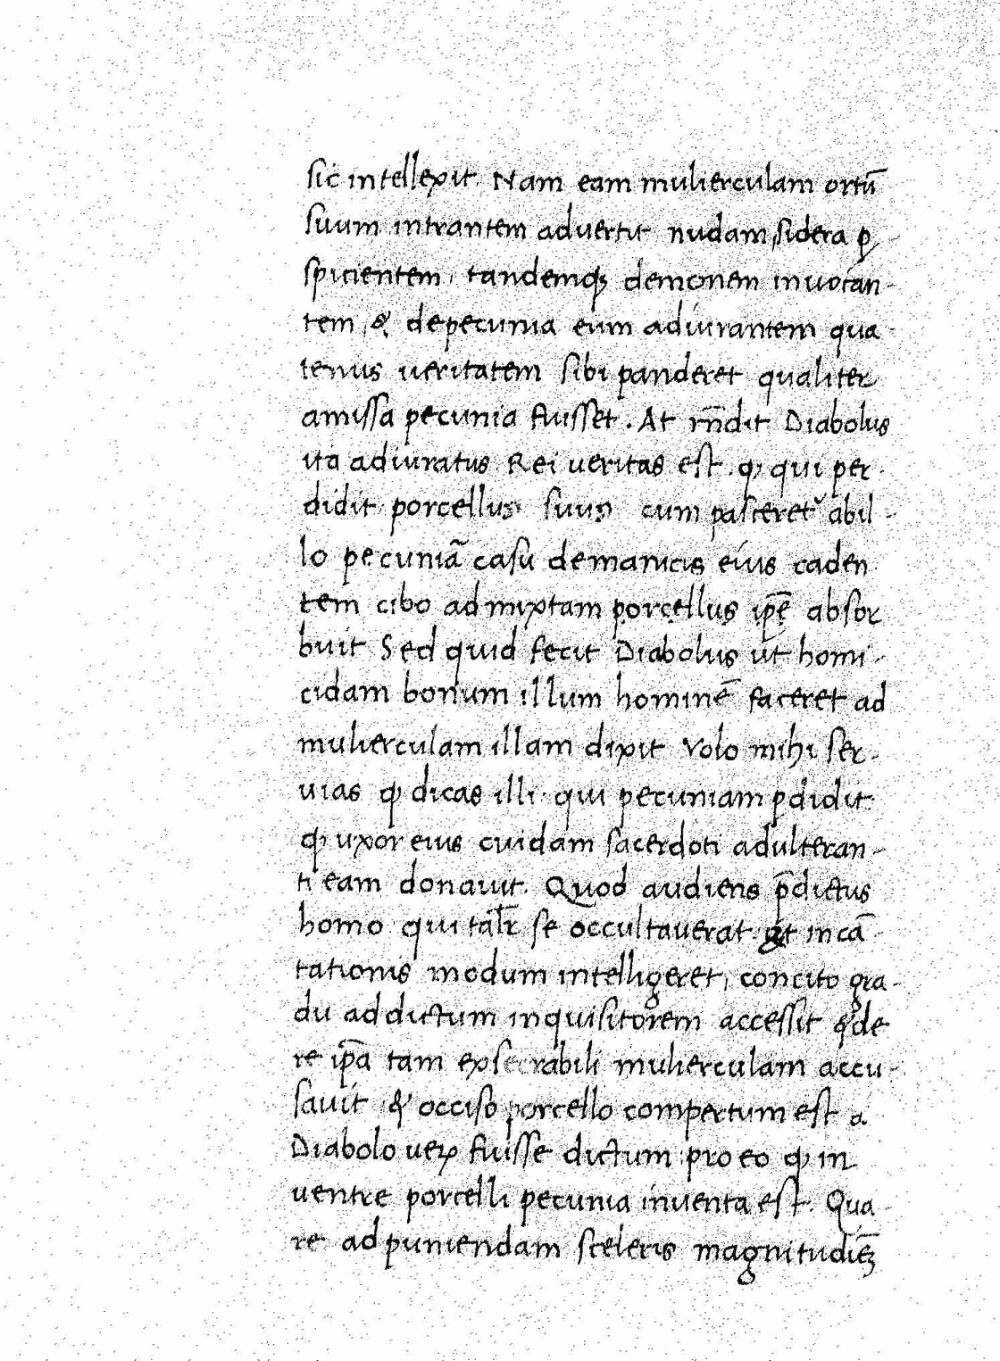 sic intellexit. Nam eam mulierculam ortū
suum intrantem advertit nudam, sidera ꝑ-
spicientem, tandemqꝫ demonem invocan-
tem, & depecunia eum adiurantem qua-
tenus veritatem sibi panderet qualiter
amissa pecunia fuisset. At rn̄dit Diabolus
ita adiuratus Rei veritas est. ꝙ qui per-
didit porcellus suus cum pasceret᷑ abil-
lo pecuniā casu demanicis eius caden
tem cibo admixtam porcellus ip̄e absor
buit Sed quid fecit Diabolus ut homi-
cidam bonum illum hominē faceret ad
mulierculam illam dixit Volo mihi ser-
vias ꝙ dicas illi qui pecuniam ꝑdidit
ꝙ uxor eius cuidam sacerdoti adulteran-
ti eam donavit. Quod audiens p̄dictus
homo qui talr̄ se occultaverat ut incā-
tationis modum intelligeret, concito gra-
du addictum inquisitorem accessit & de
re ip̄a tam exsecrabili mulierculam accu-
savit & occiso porcello compertum est a
Diabolo veꝝ fuisse dictum pro eo ꝙ in
ventre porcelli pecunia inventa est. Qua-
re ad puniendam sceleris magnitudiēꝫ